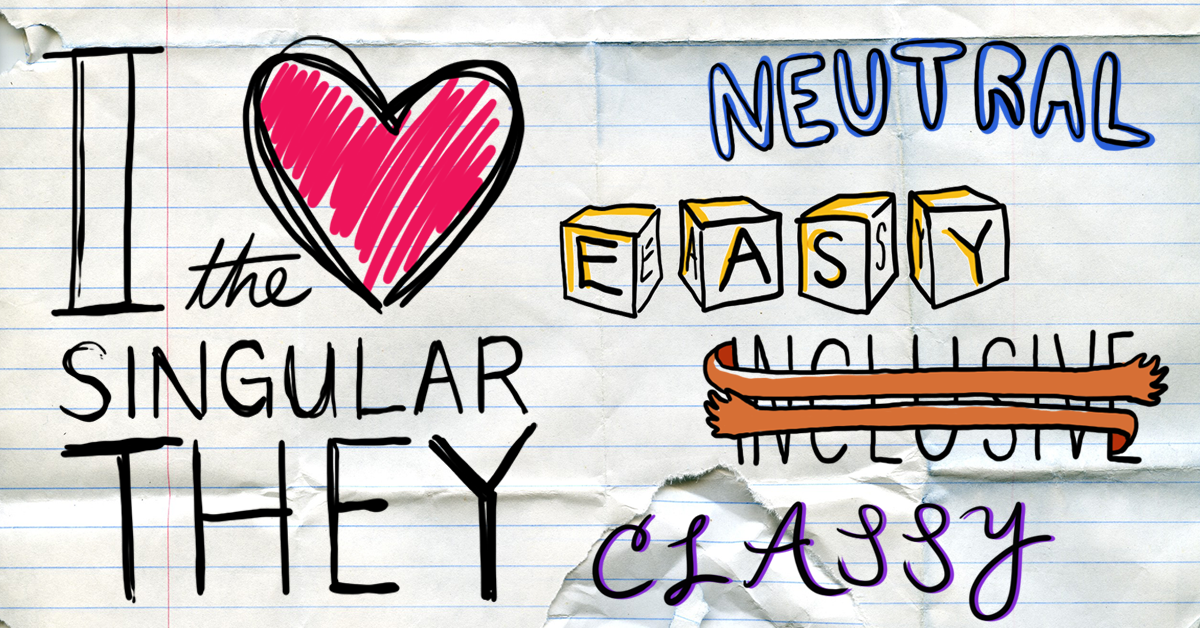 I ❤ the
SINGULAR
THEY
NEUTRAL
EASY
INCLUSIVE
CLASSY